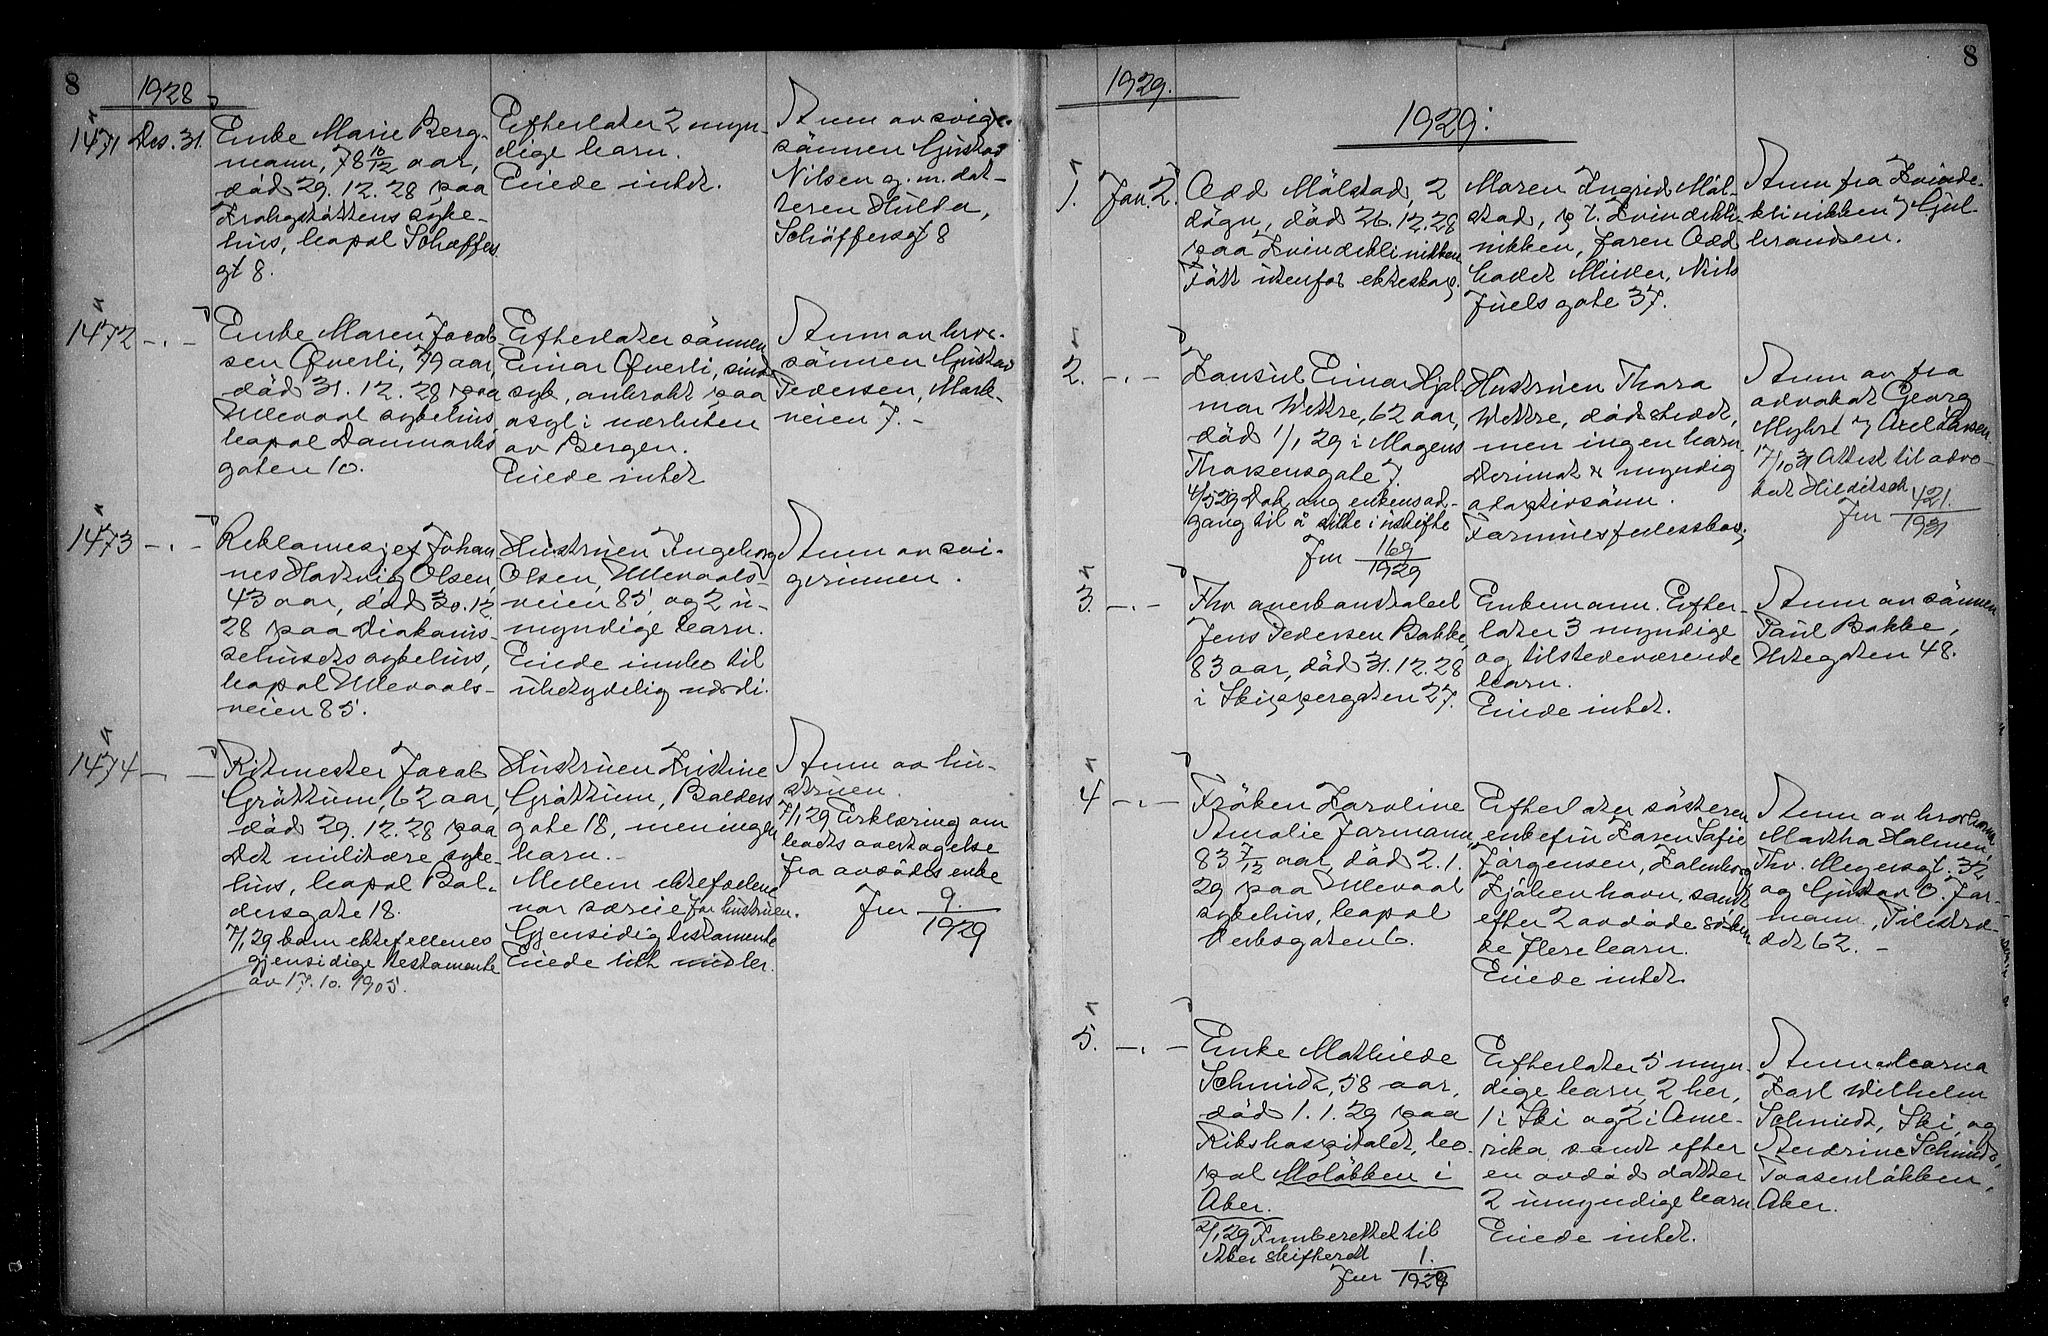 8
1928
1471 Des. 31.
Enke Marie Berg-
mann, 78 10/12 aar,
död 29.12.28 paa
Krohgstöttens syke-
hus, bopal Schæffers
gt 8.
Efterlater 2 myn-
dige barn.
Eiede intet.
Anm av svige-
sönnen Gustav
Nilsen g. m. dat-
teren Hulda,
Schöffersgt 8
1472 -.-
Enke Maren Jacob-
sen Qverli, 79 aar,
död 31.12.28 paa
Ullevaal sykehus,
bopal Danmarks
gaten 10.
Efterlater sönnen
Einar Qverli, sinds
syk, anbrakt paa
asyl i nærheten
av Bergen.
Eiede intet
Anm av bror-
sönnen Gustav
Pedersen, Mark-
veien 7.-
1473 -.-
Reklamesjef Johan
nes Hartvig Olsen,
43 aar, död 30.12
28 paa Diakonis-
sehusets sykehus,
bopal Ullevaals-
veien 85.
Hustruen Ingeborg
Olsen, Ullevaals-
veien 85, og 2 u-
myndige barn.
Eiede innbo til
ubetydelig verdi.
Anm av svi-
gerinnen.
1474 -.-
Ritmester Jacob
Gröttum, 62 aar,
död 29.12.28 paa
Det militære syke-
hus, bopal Bal-
dersgate 18.
7/1 29 kom ektefellenes
gjensidige testamente
av 17.10.1905.
Hustruen Kristine
Gröttum, Balders
gate 18, men ingen
barn.-
Mellem ektefælene
var særeie for hustruen.
Gjensidig testamente
Eiede litt midler.
Anm av hu-
struen.
7/1 29 Erklæring om
boets overtagelse
fra avdödes enke
Jnr 9/1929
8
1929.
1929:
1. Jan 2.
Odd Mölstad, 2
dögn, död 26.12.28
paa Kvindeklinikken
Fött utenfor ekteskap.
Maren Ingrid Möl-
stad, p. t. Kvindekli-
nikken, faren Odd
Cadet Müller, Niels
Juels gate 37.
Anm fra Kvinde-
klinikken v/ Gul-
brandsen.
2. -.-
Konsul Einar Hjal
mar Wettre, 62 aar,
död 1/1 29 i Mogens
Thorsensgate 7.
4/5 29 Dok. ang enkens ad-
gang til å sitte i uskifte
Jnr 169/1929
Hustruen Thora
Wettre, dödsstedet,
men ingen barn.
Derimot 1 myndig
adoptivsönn.
Formuesfellesskap.
Anm av fra
advokat Georg
Myhre v/ Axel Larsen.
17/10 31 Attest til advo-
kat Hilditsch
Jnr 421./1931
3. -.-
Fhv averbandtabel
Jens Pedersen Bakke,
83 aar, död 31.12.28
i Skippergaten 27.
Enkemann. Efter-
later 3 myndige
og tilstedeværende
barn.
Eiede intet.
Anm av sönnen
Paul Bakke,
Urtegaten 48.
4 -.-
Fröken Karoline
Amalie Jarmann,
83 7/12 aar, död 2.1.
29 paa Ullevaal
sykehus, bopal
Verksgaten 6.
Efterlater sösteren
enkefru Karen Sofie
Jörgensen, Kalenborg
Kjöbenhavn, samt
efter 2 avdöde sösken
de flere barn.
Eiede intet.
Anm av brorbarna
Martha Holmen,
Thv. Meyersgt. 32
og Gustav O. Jar-
mann, Pilestræ-
det 62.-
5. -.-
Enke Mathilde
Schmidt, 58 aar,
död 1.1.29 paa
Rikshospitalet, bo-
pal Molökken i
Aker.
2/1 29 Innberettet til
Aker skifterett
Jnr 1./1929
Efterlater 5 myn-
dige barn, 2 her,
1 i Ski og 2 i Ame-
rika, samt efter
en avdöd datter
2 umyndige barn
Eiede intet.
Anm av barna
Karl Wilhelm
Schmidt, Ski, og
Andrine Schmidt,
Taasenlökken,
Aker.